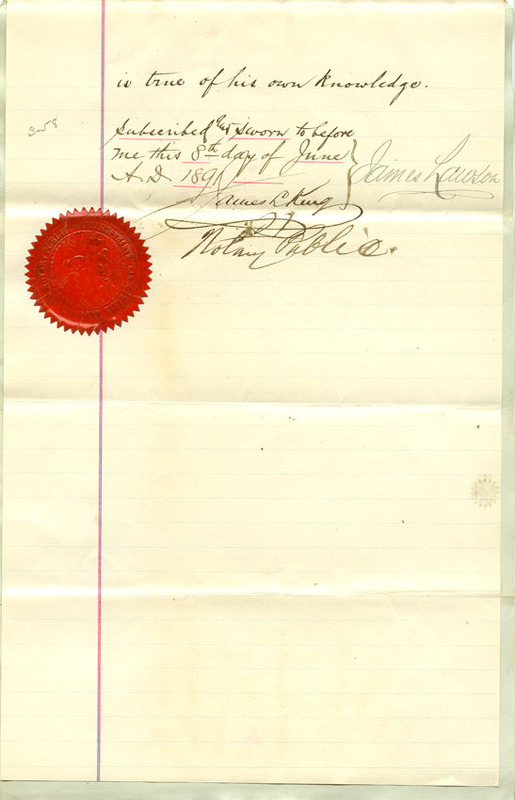 is true of his own knowledge.
358
Subscribed and sworn to before
me this 8th day of June
A.D. 1891
James Lawson
James L King
Notary Public.